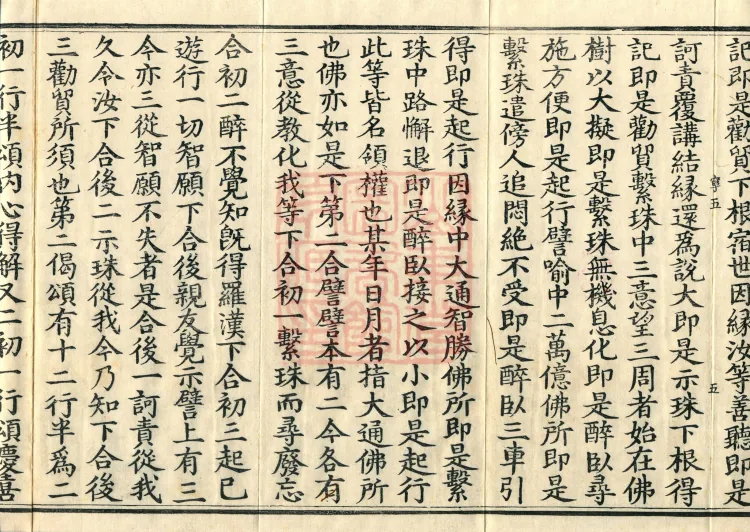 記即是勸貿下根宿世因緣汝等善聽即是
訶責覆講結緣還為說大即是示珠下根得
記即是勸貿繫珠中三意望三周者始在佛
樹以大擬即是繫珠無機息化即是醉臥尋
施方便即是起行譬喻中二萬億佛所即是
繫珠遣傍人追悶絕不受即是醉臥三車引
得即是起行因緣中大通智勝佛所即是繫
珠中路懈退即是醉臥接之以小即是起行
此等皆名領權也某年日月者指大通佛所
也佛亦如是下第二合譬譬本有二今各有
三意從教化我等下合初一繫珠而尋廢忘
合初二醉不覺知既得羅漢下合初三起已
遊行一切智願下合後親友覺示譬上有三
今亦三從智願不失者是合後一訶責從我
久令汝下合後二示珠從我今乃知下合後
三勸貿所須也第二偈頌有十二行半為二
初一行半頌內心得解又二初一行頌慶喜
寧五
五